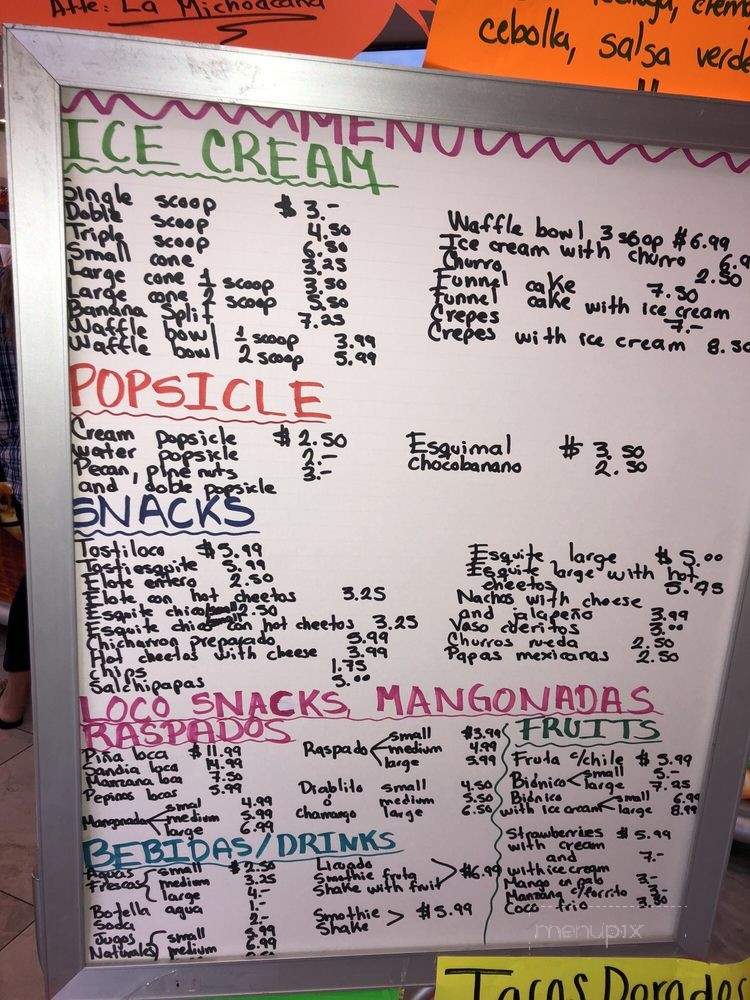 Atte: La Michoacana
crema
cebolla, salsa verde
MENU
ICE CREAM
Single scoop $ 3.-
Doble scoop 4.50
Triple scoop 6.50
Small cone 3.25
Large cone 1 scoop 3.50
Large cone 2 scoop 5.50
Banana Split 7.25
Waffle bowl 1 scoop 3.99
Waffle bowl 2 scoop 5.99
Waffle bowl 3 scoop $6.99
Ice cream with churro 6.9
Churro 2.50
Funnel cake 7.50
Funnel cake with ice cream
Crepes 7.-
Crepes with ice cream 8.50
POPSICLE
Cream popsicle $ 2.50
Water popsicle 2.-
Pecan, pine nuts 3.-
and doble popsicle
Esquimal $ 3.50
Chocobanano 2.50
SNACKS
Tostiloco $5.99
Tostiesquite 5.99
Elote entero 2.50
Elote con hot cheetos 3.25
Esquite chico 2.50
Esquite chico con hot cheetos 3.25
Chicharron preparado 5.99
Hot cheetos with cheese 3.99
chips 1.75
Salchipapas 5.00
Esquite large $ 5.00
Esquite large with hot
cheetos 5.75
Nachos with cheese
and jalapeño 3.99
Vaso 3.00
Churros rueda 2.50
Papas mexicanas 2.50
LOCO SNACKS, MANGONADAS
RASPADOS
Piña loca $11.99
Sandia loca 14.99
Manzana loca 7.50
Pepinos locos 5.99
Mangonada small 4.99
medium 5.99
large 6.99
Raspado small $3.99
medium 4.99
large 5.99
Diablito small 4.50
ó medium 5.50
chamango large 6.50
FRUITS
Fruta c/chile $ 5.99
Bionico small 5.-
large 7.25
Bionico small 6.99
with ice cream large 8.99
Strawberries $ 5.99
with cream
and 7.-
with ice cream
Mango en palo 3.-
Manzana c/forrito 3.-
Coco frio 3.50
BEBIDAS/DRINKS
Aguas small $ 2.50
Frescas medium 3.25
large 4.-
Botella agua 1.-
Soda 2.-
Jugos small 5.99
Naturales medium 6.99
Licuado
Smothie fruta $6.99
Shake with fruit
Smothie $5.99
Shake
menupix
Tacos Dorados